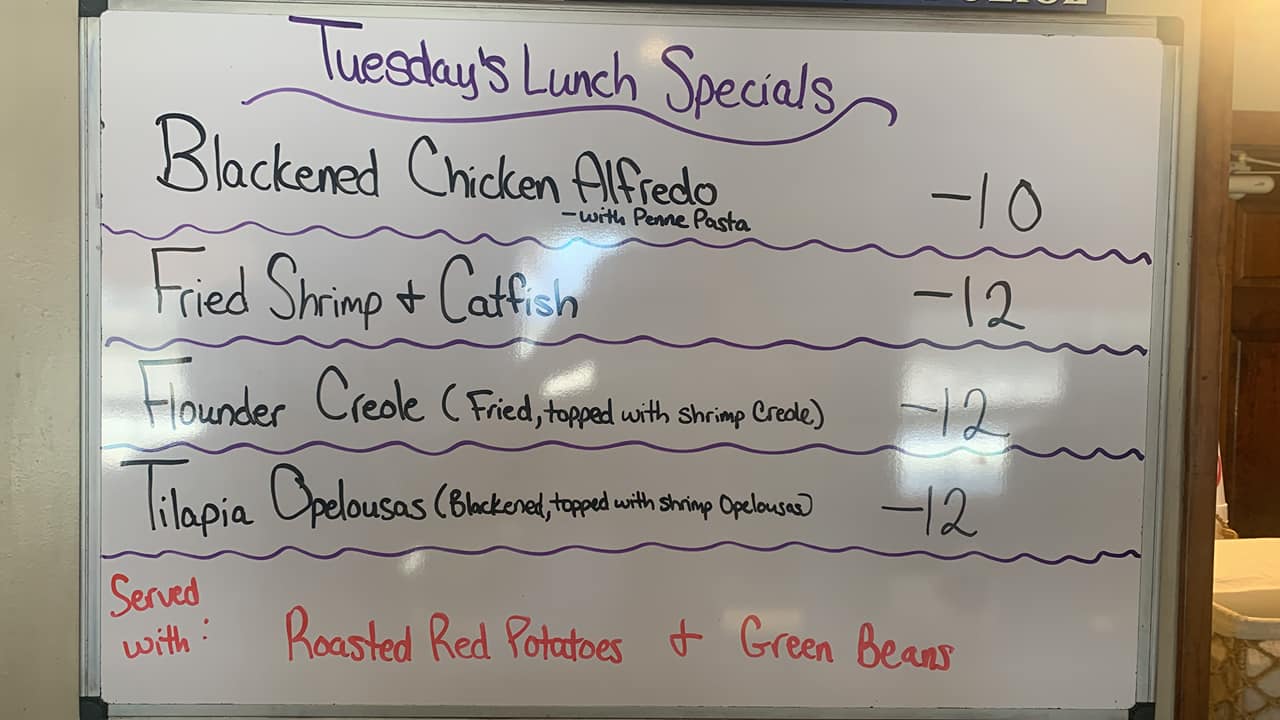 Tuesday's Lunch Specials
Blackened Chicken Alfredo -10
-with Penne Pasta
Fried Shrimp + Catfish -12
Flounder Creole (Fried, topped with shrimp Creole) -12
Tilapia Opelousas (Blackened, topped with shrimp Opelousas) -12
Served
with: Roasted Red Potatoes + Green Beans